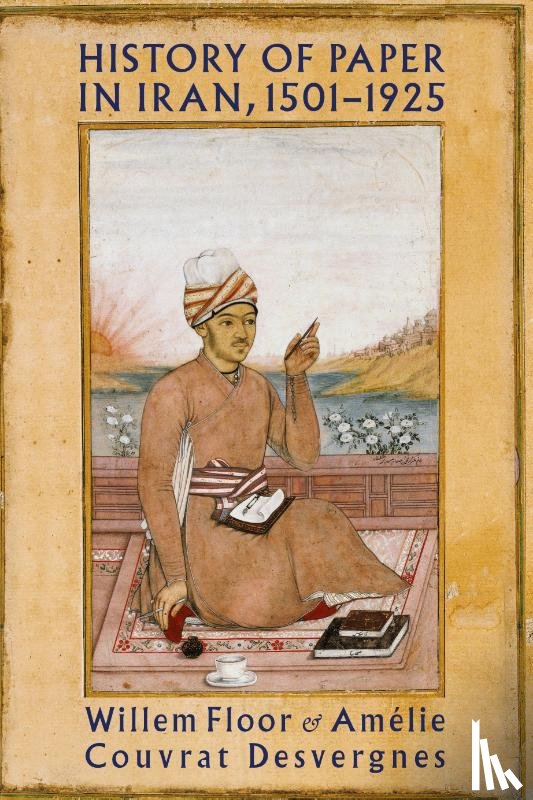 HISTORY OF PAPER
IN IRAN, 1501–1925
Willem Floor & Amélie
Couvrat Desvergnes